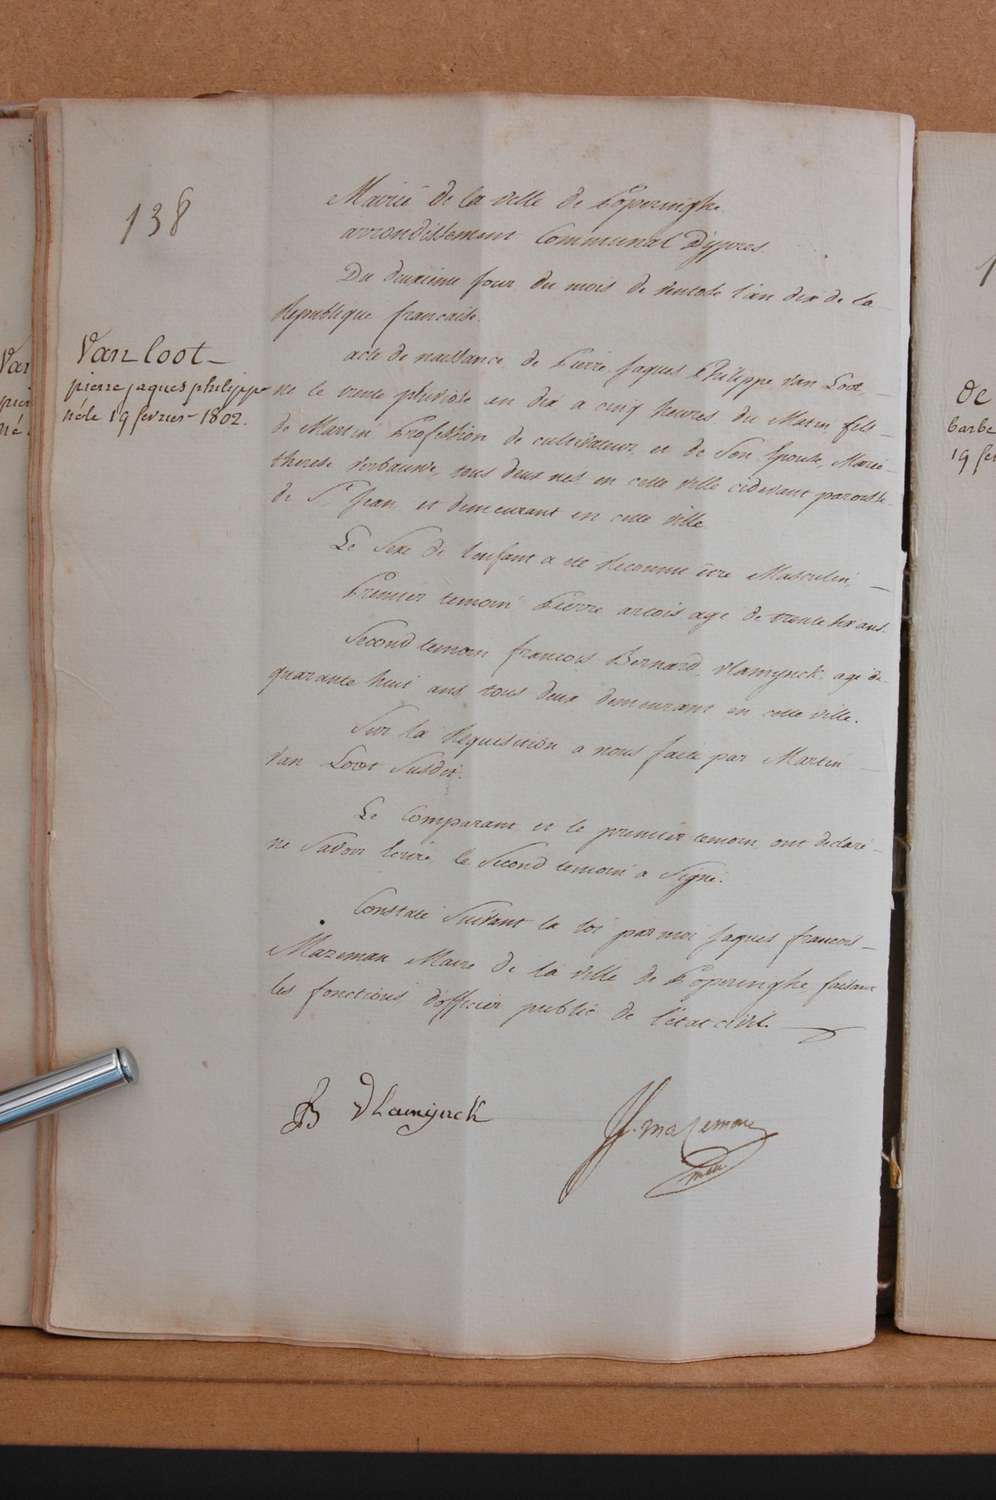 138
Van Loot
pierre jaques philippe
né le 19 fevrier 1802.
Mairie de la ville de Poperinghe
arrondissement Communal D'ypres.
Du deuxieme jour du mois de ventose l'an dix de la
Republique francaise.
acte de naissance de Pierre Jaques Philippe Van Loot,
né le trente pluviose an dix a cinq heures du Matin fils
de Martin Profession de cultivateur, et de Son Epouse, Marie
therese Verbauwe, tous deux nés en cette ville cidevant paroisse
de St Jean, et demeurant en cette ville
Le Sexe de l'enfant a été Reconnu être Masculin,
Premier temoin Pierre artois agé de trente six ans.
Second temoin francois Bernard vlamynck agé de
quarante huit ans tous deux demeurant en cette ville.
Sur la Requisition a nous faite par Martin
Van Loot Susdit.
Le Comparant et le premier temoin, ont declaré
ne Savoir Ecrire, le Second temoin a Signé.
Constaté Suivant la loi par moi Jaques francois
Mazeman Maire de la ville de Poperinghe, faisant
les fonctions d'officier public de l'etat civil.
FB Vlamijnck
JF. mazeman
maire
Van
né
De
barbe